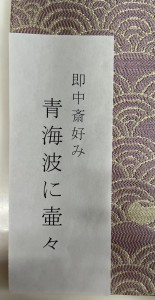 即中斎好み
青海波に壷々